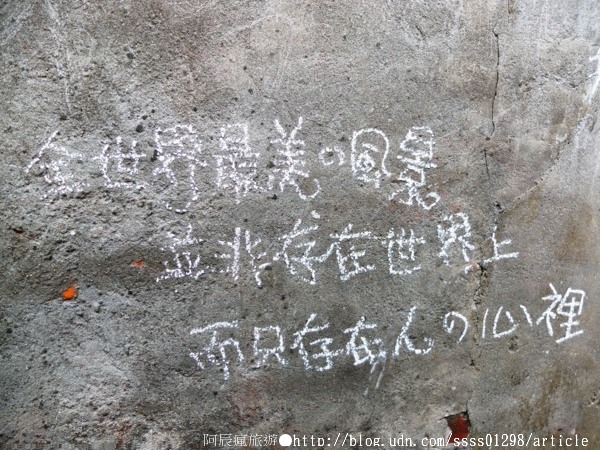 全世界最美の風景
並非存在世界上
而只存在人の心裡
阿辰瘋旅遊●http://blog.udn.com/ssss01298/article